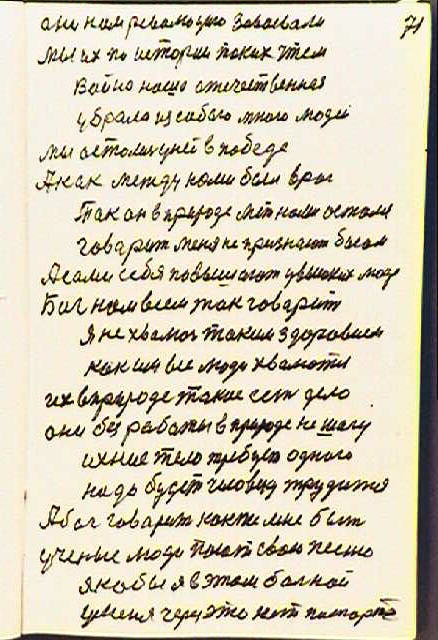 71
они нам революцию завоевали
мы их по истории таких чтем
Война наша отечественная
убрала из собою много людей
мы остались у ней в победе
А как между нами был враг
Так он в природе меж нами остался
говорят меня не признают богом
А сами себя повышают у людей
Бог нам всем так говорит
Я не хвалюсь таким здоровием
как им все люди хвалются
их в природе такое есть дело
они без работы в природе не шагу
ихние тело требует одного
надо будет человеку трудится
А бог говорит как же мне быть
ученые люди поют свою песню
якобы я в этом больной
у меня через это нет паспорта